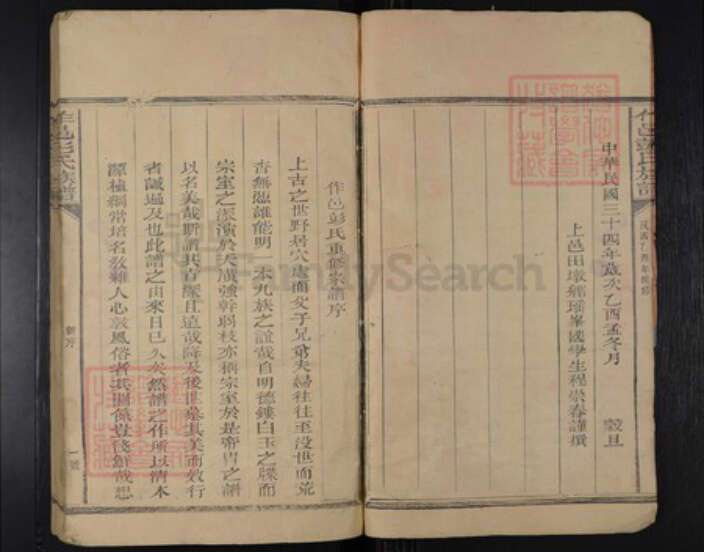 中華民國三十四年歲次乙酉孟冬月 穀旦
上邑田墩鄉瑤峯國學生程崇春謹撰
作邑彭氏重修宗譜序
上古之世野居穴處而父子兄弟夫婦往往至沒世而荒
杳無憑誰能明一本九族之誼哉自明德鏤白玉之牒而
宗室之派演於天潢強幹弱枝亦稱宗室於是帝冑之譜
以名美哉斯譜其旨深且遠哉降及後世慕其美而效行
者誠遍及也此譜之由來日已久矣然譜之作所以清木
源植綱常培名教維人心敦風俗者其關係豈淺鮮哉思
彭氏族譜
新序
一號
FamilySearch